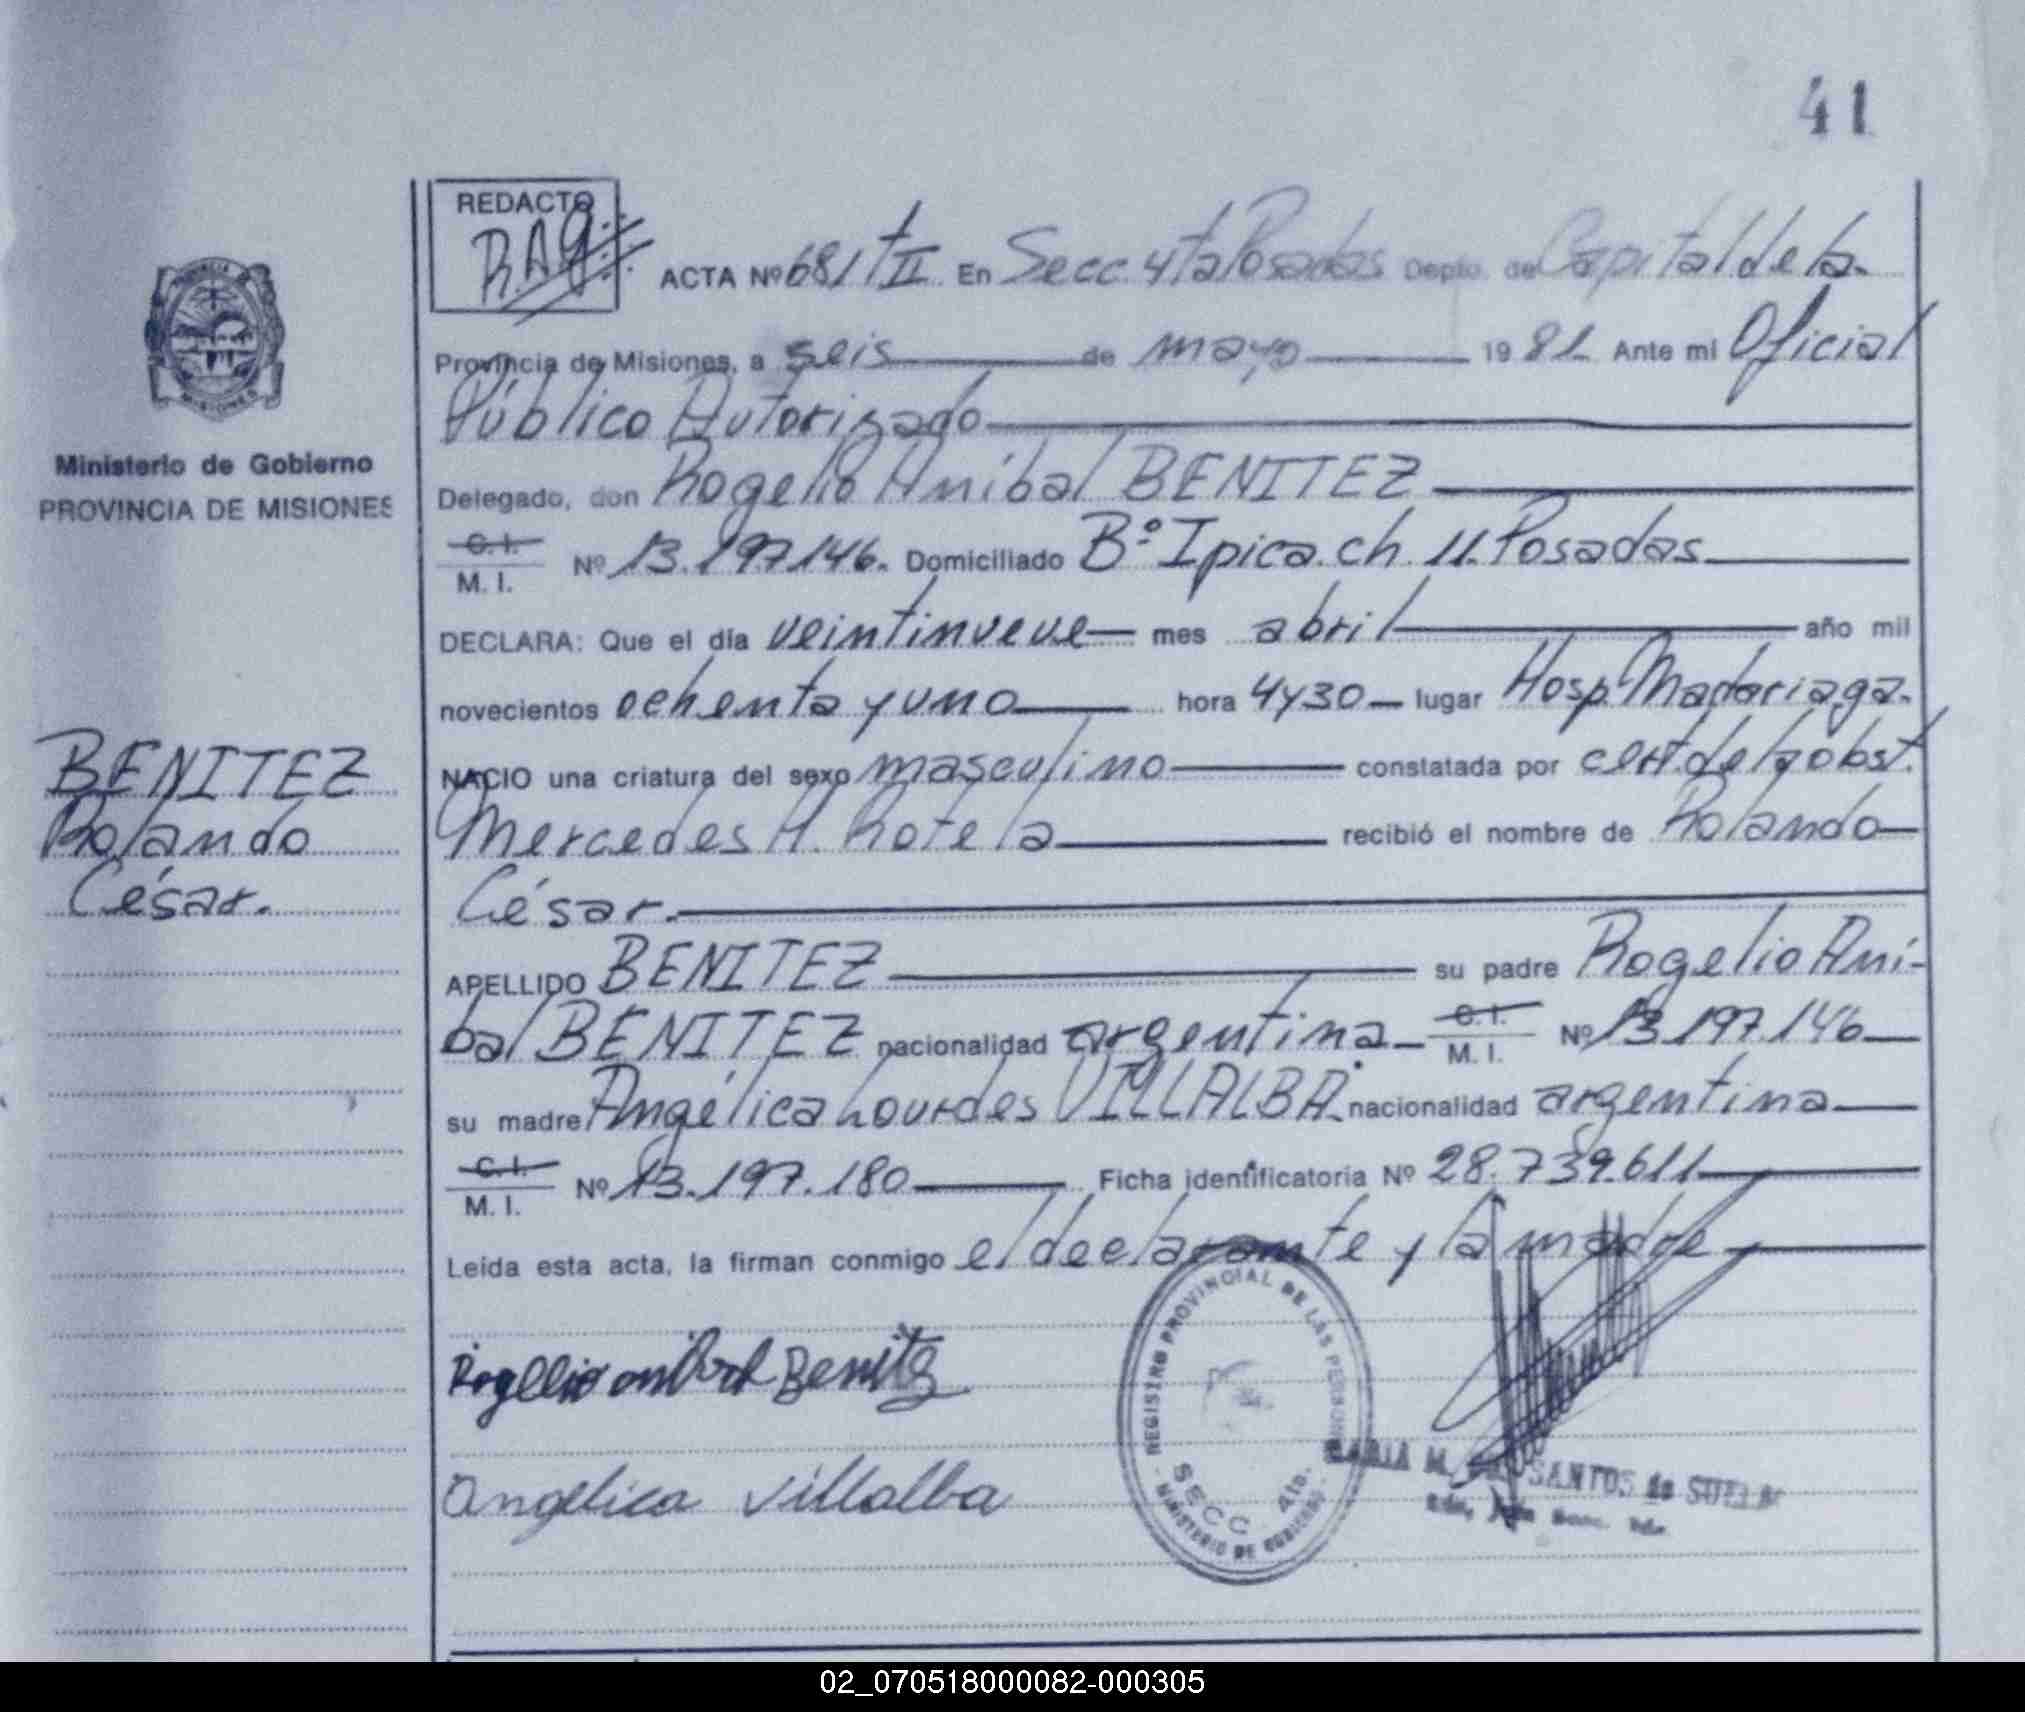 41
REDACTO
R.A.G.
ACTA Nº 681 t II En Secc 4ta Posadas Depto. de Capital de la
Provincia de Misiones, a seis de mayo 1981 Ante mi Oficial
Público Autorizado
Delegado, don Rogelio Aníbal BENITEZ
C. I.
M. I. Nº 13.197.146. Domiciliado Bº Ipica. ch. 11. Posadas
DECLARA: Que el día veintinueve mes abril año mil
novecientos ochenta y uno hora 4y30 lugar Hosp. Madariaga.
NACIO una criatura del sexo masculino constatada por cert. de la obst.
Mercedes H. Rotela recibió el nombre de Rolando
César.
APELLIDO BENITEZ su padre Rogelio Aní-
bal BENITEZ nacionalidad argentina C. I.
M. I. Nº 13.197.146
su madre Angélica Lourdes VILLALBA nacionalidad argentina
C. I.
M. I. Nº 13.197.180 Ficha identificatoria Nº 28.739.611
Leída esta acta, la firman conmigo el declarante y la madre
Rogelio anibal Benitez
Angelica Villalba
REGISTRO PROVINCIAL DE LAS PERSONAS
SECC. 4ta.
MINISTERIO DE GOBIERNO
MARIA M. SANTOS de
PROVINCIA DE MISIONES
Ministerio de Gobierno
PROVINCIA DE MISIONES
BENITEZ
Rolando
César.
02_070518000082-000305